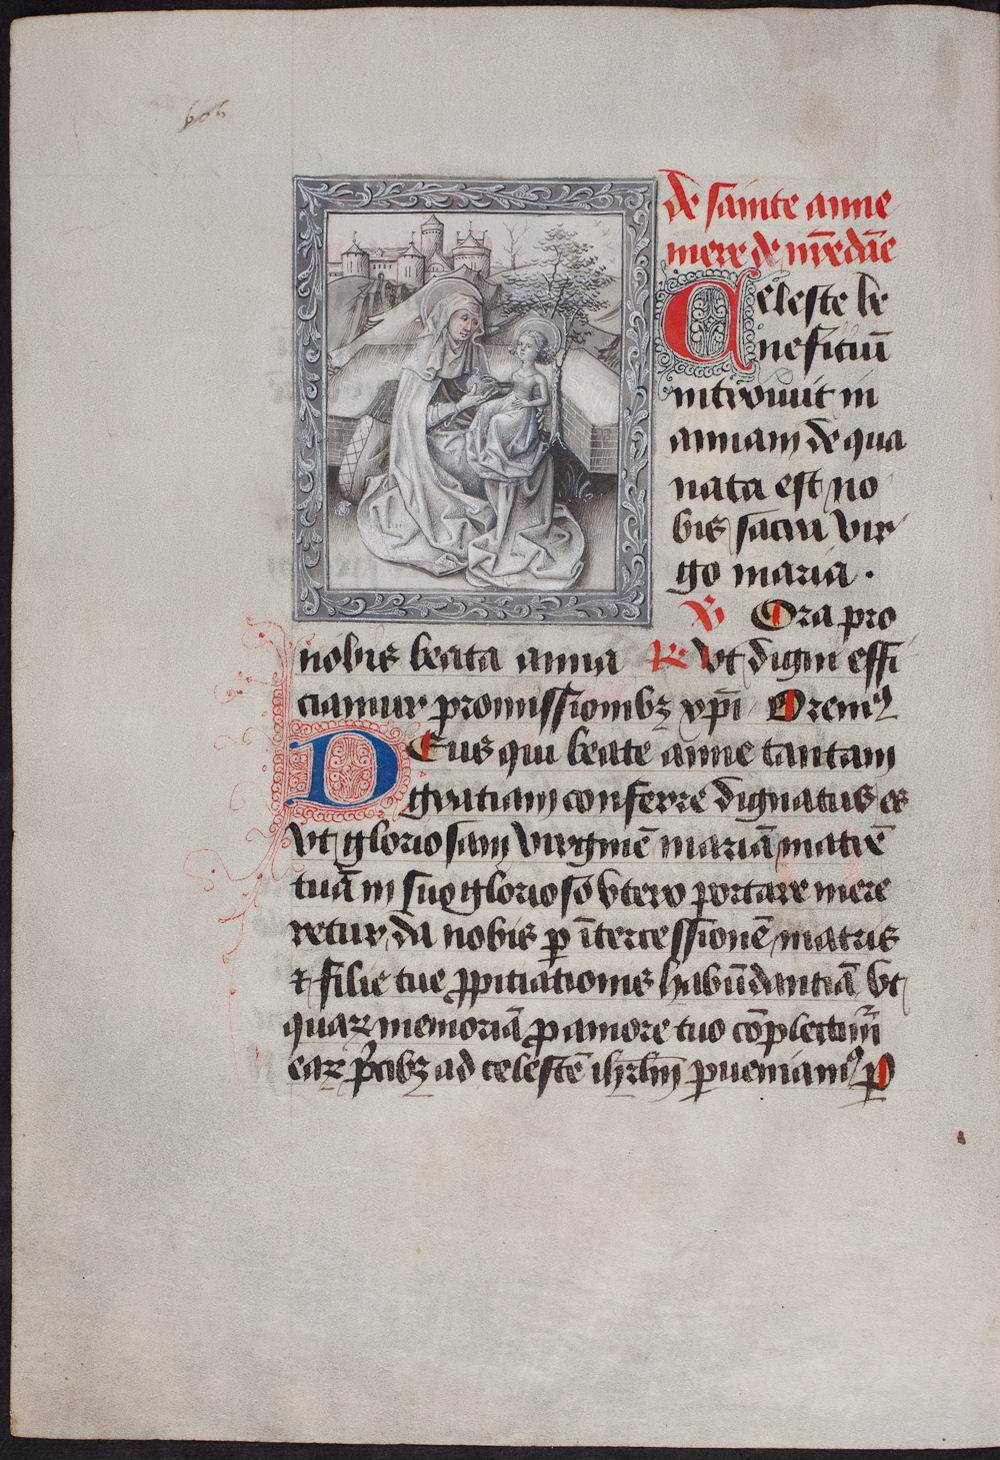 606
de sainte anne
mere de nr̄e dāe
Celeste be
neficiū
introiuit in
annam de qua
nata est no
bis sacra vir
go maria .
V Ora pro
nobis beata anna R Vt digni effi
ciamur promissionibꝫ xp̄i Oremꝰ
Deus qui beate anne tantam
gratiam conferre dignatus es
vt gloriosam virginē mariā matrē
tuā in suo glorioso vtero portare mere
retur da nobis ꝑ ītercessionē matris
⁊ filie tue ꝓpitiationis habūdantiā vt
quaꝝ memoriā ꝓ amore tuo cōplectimur̄
eaꝝ p̄cibꝫ ad celestē ihrl̄m ꝑueniamꝰ ꝑ